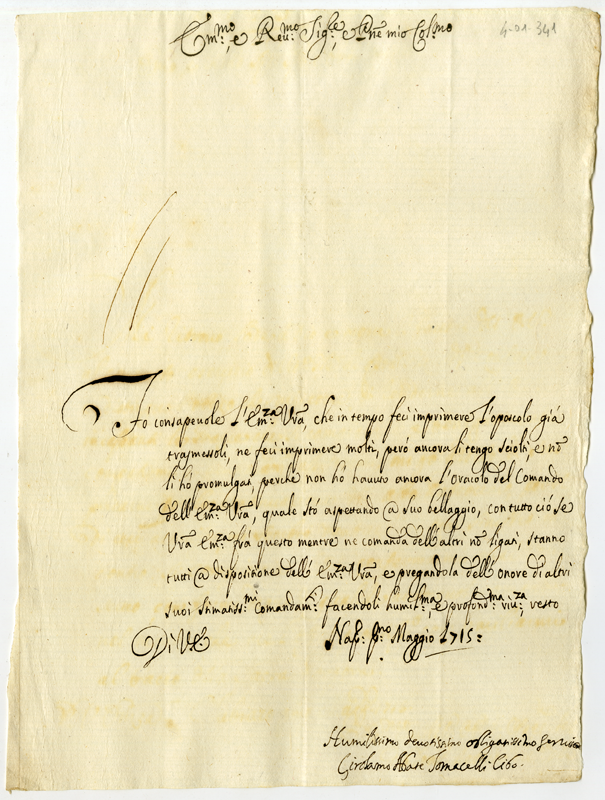 Em:mo, e Reu:mo Sig:re, e Pne mio Col:mo
4-01-341
Fó consapeuole l'Em:za Vrã, che in tempo feci imprimere l'opascolo giá
trasmessoli, ne feci imprimere molti, peró ancora li tengo scioli, e nõ
li hó promulgati, perche non hó hauuto ancora l'oracolo del Comando
dell'Em:za Vrã, quale stó aspettando @ suo bellaggio, con tutto ció se
Vrã Em:za frá questo mentre ne comanda dell'altri nõ ligati, stanno
tutti @ dispositione dell'Em:za Vrã, e pregandola dell'onore di altri
suoi stimatiss:mi Comandam:ti facendoli humil:ma, e profond:ma riu:za, resto
Di V E Nap: pmo Maggio 1715:
Humilissimo deuotissimo obligatissimo
Girolamo Abate Tomacelli Cibo.